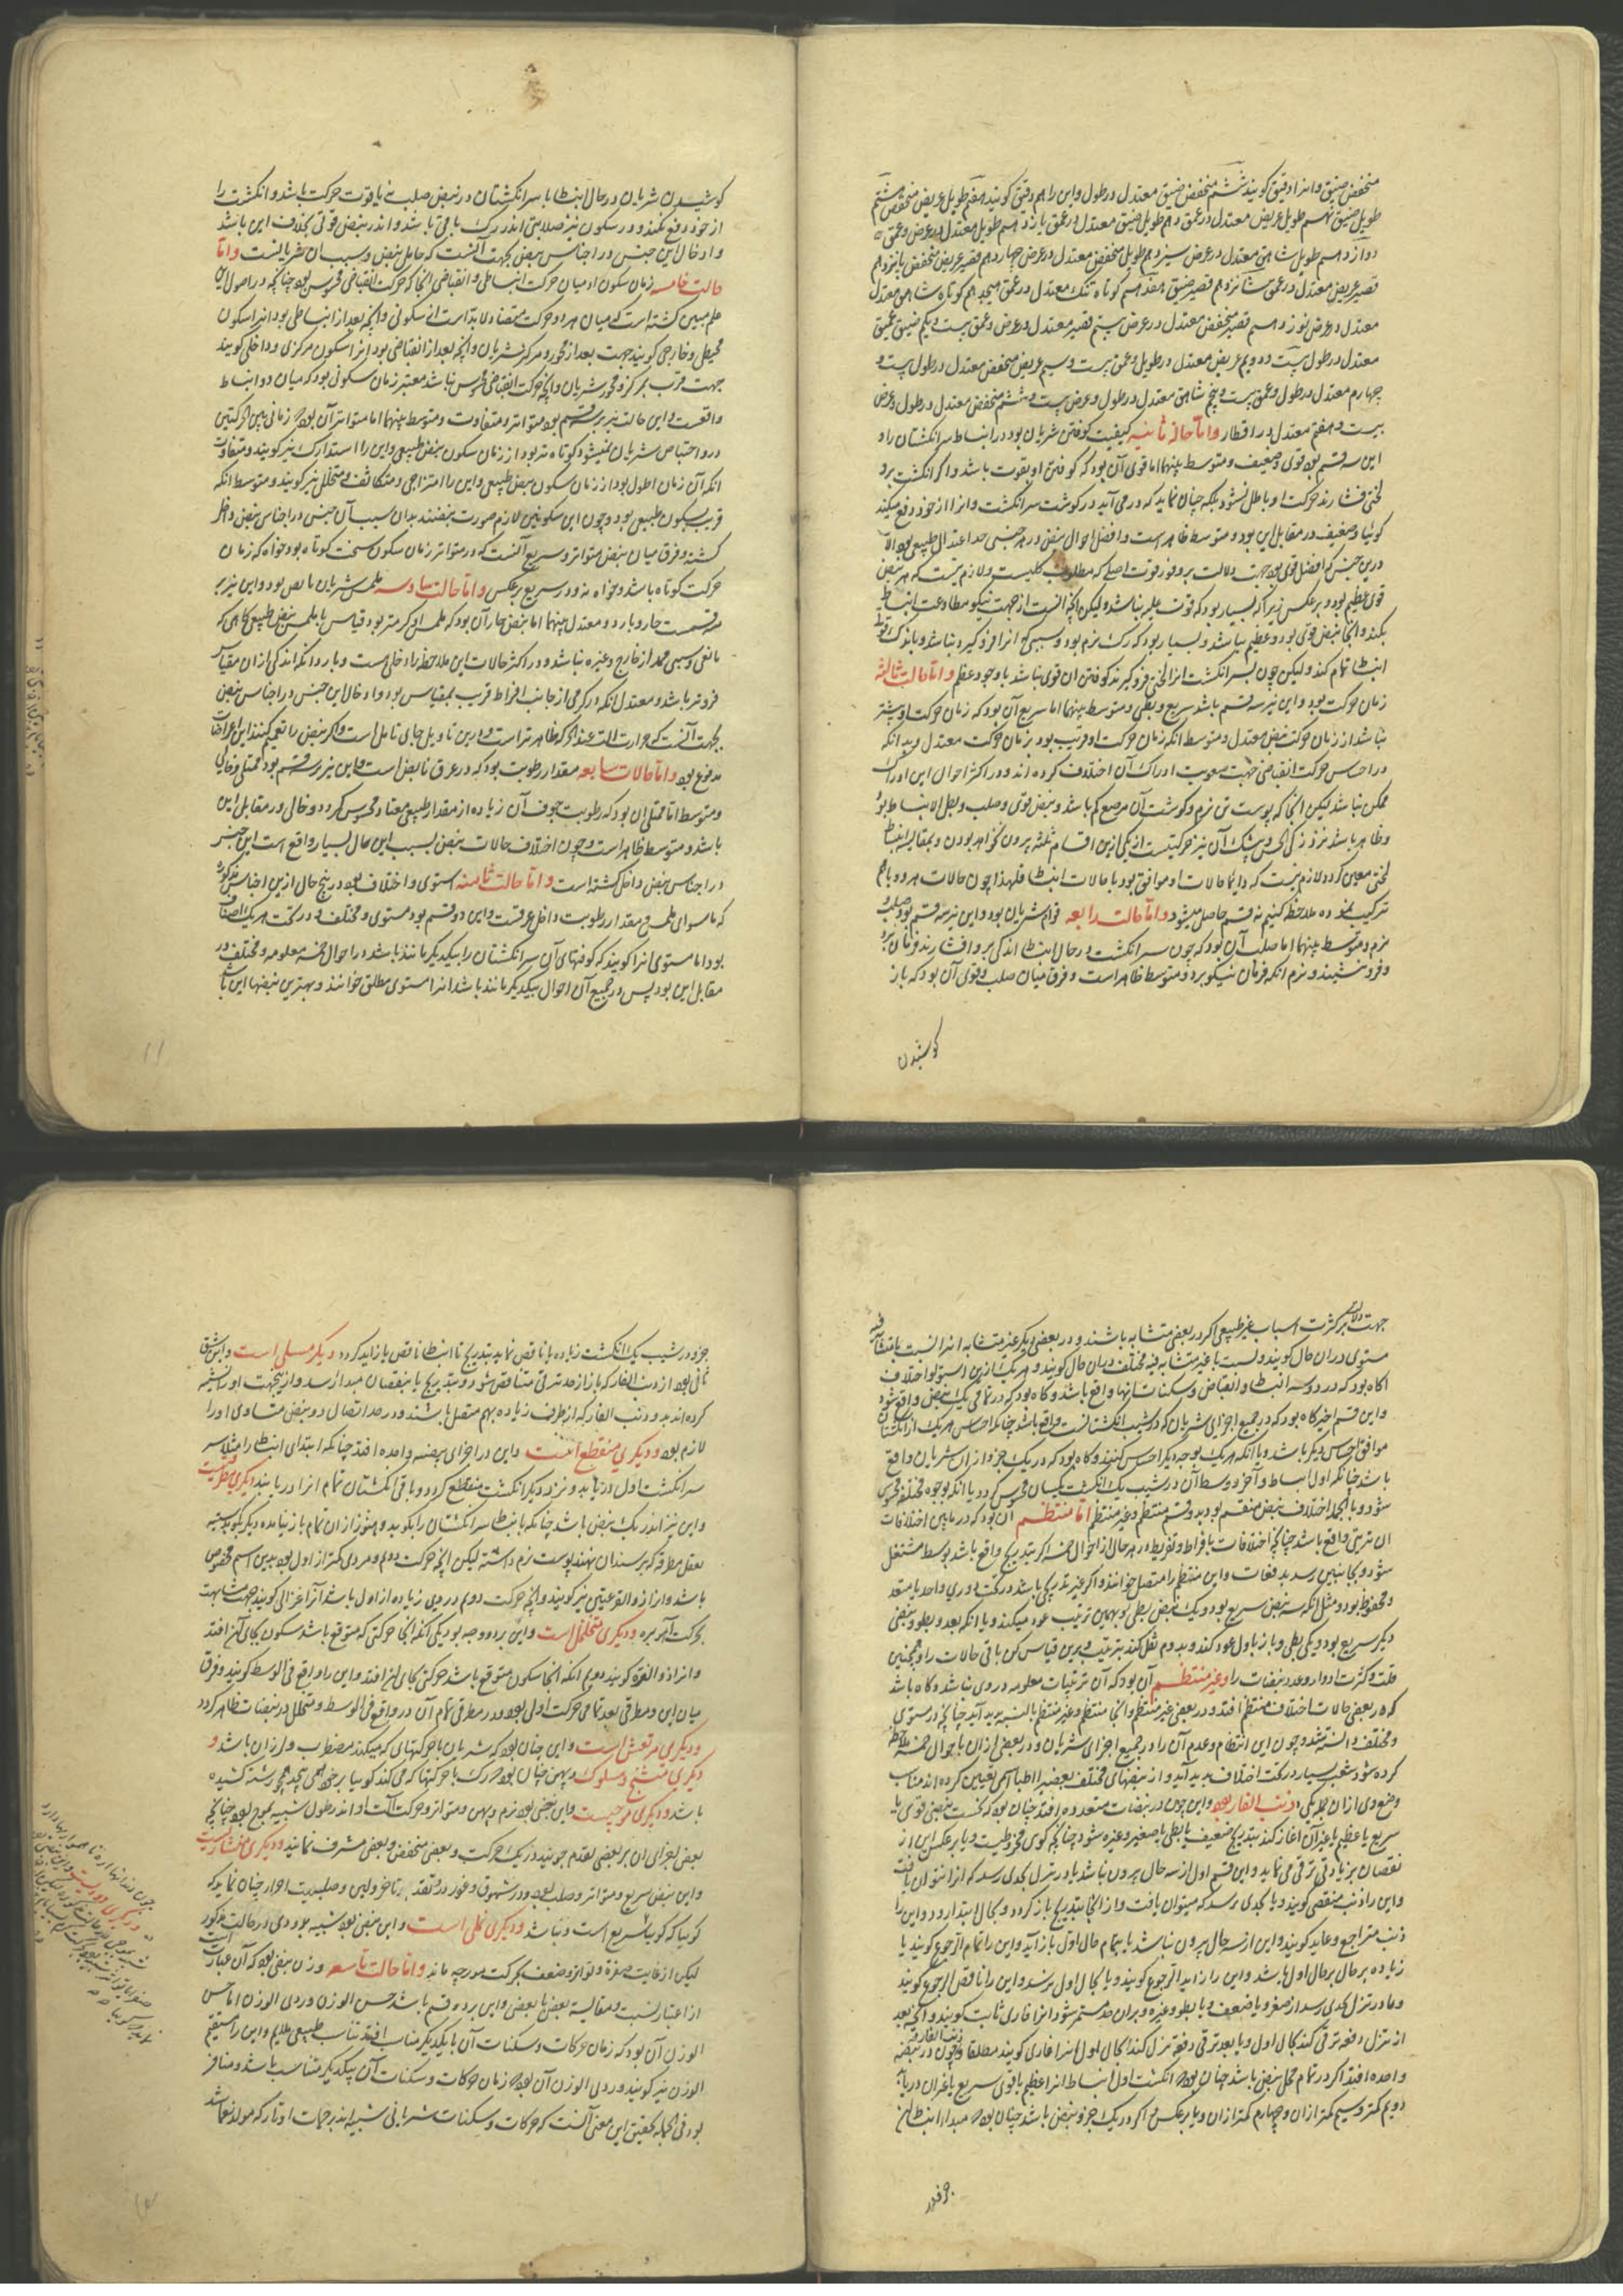 منخفض ضیق و انرا دقیق کویند ششم منخفض ضیق معتدل در طول و این را هم دقیق کویند هفتم طویل عریض منخفض هشتم
طویل ضیق نهم طویل عریض معتدل در عمق دهم طویل ضیق معتدل در عمق یازدهم طویل معتدل در عرض و عمق
دوازدهم طویل شاهق معتدل در عرض سیزدهم طویل منخفض معتدل در عرض چهاردهم قصیر عریض منخفض پانزدهم
قصیر عریض معتدل در عمق شانزدهم قصیر ضیق هفدهم کوتاه تنک معتدل در عمق هیجدهم کوتاه شاهق معتدل
معتدل در عرض نوزدهم قصیر منخفض معتدل در عرض بیستم قصیر معتدل در عرض و عمق بیست و یکم ضیق عمیق
معتدل در طول بیست و دویم عریض معتدل در طول و عمق بیست و سیم عریض منخفض معتدل در طول بیست و
چهارم معتدل در طول و عمق بیست و پنجم شاهق معتدل در طول و عرض بیست و ششم منخفض معتدل در طول و عرض
بیست و هفتم معتدل در اقطار واما حالة ثانیه کیفیت کوفتن شریان بود در انبساط سر انکشتان را و
این سه قسم بود قوی و ضعیف و متوسط بینهما اما قوی آن بود که کوفتن او بقوت باشد و اکر انکشت برو
لختی فشارند حرکت او باطل نشود بلکه چنان نماید که در می آید در کوشت سر انکشت و انرا از خود دفع میکند
کوئیا و ضعیف در مقابل این بود و متوسط ظاهر است و افضل احوال نبض در هر جنسی حد اعتدال طبیعی بود الا
درین جنس که افضل قوی بود جهت دلالت بر وفور قوت اصلی که مطلوب کلیست و لازم نیست که هر نبض
قوی عظیم بود و بر عکس زیرا که بسیار بود که قوت علیم نباشد ولیکن آلة انست از جهت نیکو مطاوعت انبساط
بکند و انجا نبض قوی بود و عظیم نباشد و بسیار بود که رک نرم بود و سببی که انرا فرو کیرد نباشد و باندک قوة
انبساط تمام کند ولیکن چون بسر انکشت انرا لختی فرو کیرند کوفتن ان قوی نباشد با وجود عظم واما حالت ثالثه
زمان حرکت بود و این نیز سه قسم باشد سریع و بطی و متوسط بینهما اما سریع آن بود که زمان حرکت او بیشتر
نباشد از زمان حرکت نبض معتدل و متوسط انکه زمان حرکت او قریب بود بزمان حرکت معتدل و بدانکه
در احساس حرکت انقباضی جهت صعوبت ادراک آن اختلاف کرده اند و در اکثر احوال این ادراک
ممکن نباشد لیکن انجا که پوست تن نرم و کوشت آن موضع کم باشد و نبض قوی و صلب و بطی الانبساط بود
لختی معین کردد لازم نیست که دایما حالات او موافق بود با حالات انبساط فلهذا چون حالات هر دو با هم
ترکیب نموده ملاحظه کنیم نه قسم حاصل میشود واما حالت رابعه قوام شریان بود و این نیز سه قسم بود صلب و
نرم و متوسط بینهما اما صلب آن بود که چون سر انکشت در حال انبساط اندکی برو افشارند فرمان نبرد
و فرو ننشیند و نرم انکه فرمان نیکو برد و متوسط ظاهر است و فرق میان صلب و قوی آن بود که باز
کوشیدن
کوشیدن شریان در حال انبساط با سر انکشتان در نبض صلب نه با قوت حرکت باشد و انکشت را
از خود دفع نکند و در سکون نیز صلابتی اندر رک باقی باشد و اندر نبض قوی بخلاف این باشد
و ادخال این جنس در اجناس نبض بجهت آنست که حامل نبض و سبب آن شریانست واما
حالت خامسه زمان سکون او میان حرکت انبساطی و انقباضی انجا که حرکت انقباضی محسوس بود چنانچه در اصول این
علم مبین کشته است که میان هر دو حرکت متضاده لابد است از سکونی و انچه بعد از انبساطی بود انرا سکون
محیطی و خارجی کویند جهت بعد از محور و مرکز شریان و انچه بعد از انقباضی بود انرا سکون مرکزی و داخلی کویند
جهت قرب بمرکز و محور شریان و انجا که حرکت انقباضی محسوس نباشد معتبر زمان سکونی بود که میان دو انبساط
واقعست و این حالت نیز بر سه قسم بود متواتر و متفاوت و متوسط بینهما اما متواتر آن بود که زمانی بین الحرکتین
انکه آن زمان اطول بود از زمان سکون نبض طبیعی و این را امتزاجی و متکاثف و متخلخل نیز کویند و متوسط انکه
قریب بسکون طبیعی بود و چون این سکونین لازم صورت نبضند بدان سبب آن جنس در اجناس نبض داخل
کشته و فرق میان نبض متواتر و سریع آنست که در متواتر زمان سکون سخت کوتاه بود خواه که زمان
حرکت کوتاه باشد و خواه نه و در سریع بر عکس واما حالت سادسه ملمس شریان نابض بود و این نیز بر
سه قسمست حار و بارد و معتدل بینهما اما نبض حار آن بود که ملمس او کرمتر بود قیاس با ملمس نبض طبیعی کاهی که
مانعی و سببی ممد از خارج و غیره نباشد و در اکثر حالات این ملاحظه را دخلی هست و بارد انکه اندکی از ان مقیاس
فروتر باشد و معتدل انکه در کرمی از جانب افراط قریب بمقیاس بود و ادخال این جنس در اجناس نبض
مدفوع بود واما حالات سابعه مقدار رطوبت بود که در عرق نابض است و این نیز بر سه قسم بود ممتلی و خالی
و متوسط اما ممتلی ان بود که رطوبت جوف آن زیاده از مقدار طبیعی معتاد محسوس کردد و خالی در مقابل این
باشد و متوسط ظاهر است و چون اختلاف حالات نبض بسبب این حال بسیار واقع است این جنس
در اجناس نبض داخل کشته است واما حالت ثامنه استوی و اختلاف بود در پنج حال ازین اجناس مذکوره
که ماسوای ملمس و مقدار رطوبت داخل عرقست و این دو قسم بود مستوی و مختلف و در تحت هر یک اصناف
بود اما مستوی انرا کویند که کوفتهای آن سر انکشتان را بیکدیکر مانند باشد در احوال خمسه معلومه و مختلف در
مقابل این بود پس در جمیع آن احوال بیکدیکر مانند باشد انرا مستوی مطلق خوانند و بهترین نبضها این باشد
۱۱
جهت دلالت بر کثرت اسباب غیر طبیعی اکر در بعضی متشابه باشند و در بعضی دیکر غیر متشابه انرا نسبت بامتشابه فیه
مستوی در ان حال کویند و نسبت با غیر متشابه فیه مختلف در ان حال کویند و هر یک ازین استوا و اختلاف
اکاه بود که در دو سه انبساط و انقباض و سکنات انها واقع باشد و کاه بود که در تمامی یک نبض واقع شود
و این قسم اخیر کاه بود که در جمیع اجزای شریان که در شیب انکشتانست واقع باشد چنانکه احساس هر یک از انکشتان
موافق احساس دیکر باشد و یا انکه هر یک بوجه دیکر احساس کنند و کاه بود که در یک جزو از ان شریان واقع
باشد چنانکه اول انبساط و آخر و وسط آن در شیب یک انکشت یکسان محسوس کردد یا انکه بوجوه مختلفه محسوس
شود و بالجمله اختلاف نبض منقسم بود بدو قسم منتظم و غیر منتظم اما منتظم آن بود که در مابین اختلافات
ان ترتیبی واقع باشد چنانچه اختلافات بافراط و تفریط در هر حال از احوال خمسه اکر بتدریج واقع باشد بوسط مشتغل
شود و بجانبین رسد بدفعات و این منتظم را متصل خوانند و اکر غیر تدریجی باشد در تحت دوری واحد یا متعدد
و محفوظ بود و مثل انکه سه نبض سریع بود و یک نبض بطی و بهمین ترتیب عود میکند و یا انکه بعد و بطو و نبضی
دیکر سریع بود و یکی بطی و باز باول عود کند و بدوم نقل کند بترتیب و برین قیاس کن باقی حالات را و همچنین
قلت و کثرت ادوار و عدد نبضات را وغیر منتظم آن بود که آن ترتیبات معلومه در وی نباشد و کاه باشد
که در بعضی حالات اختلاف منتظم افتد و در بعضی غیر منتظم و انجا منتظم و غیر منتظم بالنسبه پدید آید چنانچه در مستوی
و مختلف دانسته شد و چون این انتظام و عدم آن را در جمیع اجزای شریان و در بعضی از ان با احوال خمسه ملاحظه
کرده شود شعب بسیار در تحت اختلاف پدید آید و از نبضهای مختلف بعضی را اطبا اسمی تعیین کرده اند مناسب
وضع وی از ان جمله یکی ذنب الفار بود و این چون در نبضات متعدده افتد چنان بود که نخست نبضی قوی یا
سریع یا عظیم یا غیر آن آغاز کند بتدریج ضعیف یا بطی یا صغیر و غیره شود چنانچه کوئی مخروطیست و یا بر عکس این از
نقصان بزیادتی ترقی می نماید و این قسم اول از سه حال بیرون نباشد یا در تنزل بحدی رسد که انرا نتوان یافت
واین را ذنب منقضی کویند و یا بحدی رسد که میتوان یافت و از انجا بتدریج باز کردد و بحال ابتدا رود و این را
ذنب متراجع و عاید کویند و این از سه حال بیرون نباشد یا بتمام حال اول باز آید و این را تمام الرجوع کویند یا
زیاده بر حال بر حال اول باشد و این را زاید الرجوع کویند و یا بحال اول نرسد و این را ناقص الرجوع کویند
و یا در تنزل بحدی رسد از صغر و یا ضعف و یا بطو و غیره و بران حد مستمر شود انرا فاری ثابت کویند و آنچه بعد
از تنزل دفعه ترقی کند بحال اول و یا بعد ترقی دفعه تنزل کند بحال اول انرا فاری کویند مطلقا و چون در نبضه
ذنب الفار
واحده افتد اکر در تمام محل نبض باشد چنان بود که انکشت اول انبساط انرا عظیم یا قوی یا سریع یا غیر ان دریابد
دویم کمتر و سیم کمتر از ان و چهارم کمتر از ان و یا بر عکس و اکر در یک جزو نبض باشد چنان بود که مبداء انبساط ان
جزو در
جزو در شیب یک انکشت زیاده یا ناقص نماید بتدریج تا انبساط ناقص یا زاید کردد و دیکر مسلی است و این شق
ثانی بود از ذنب الفار که باز از حد ترقی متناقص شود و بتدریج یا بنقصان مبدا رسد و از اینجهت او را تشبیه
کرده اند بدو ذنب الفار که از طرف زیاده بهم متصل باشند و در حد اتصال دو نبض متساوی او را
لازم بود و دیکری منقطع است و این در اجزای نبضه واحده افتد چنانکه ابتدای انبساط را مثلا سر
سر انکشت اول دریابد و نزد دیکر انکشت منقطع کردد و باقی انکشتان تمام انرا دریابند دیکری مطرقیست
واین نیز اندر یک نبض باشد چنانکه بانبساط سر انکشتان را بکوبد و هنوز از ان تمام باز نیامده دیکر بکوبد شبیه
بفعل مطرقه که بر سندان نهند پوست نرم داشته لیکن آنچه حرکت دوم در وی کمتر از اول بود بدین اسم مخصوص
باشد و انرا ذو القرعتین نیز کویند و آنچه حرکت دوم در وی زیاده از اول باشد آنرا غزالی کویند جهت مشابهت
بحرکت آهو بره و دیکری متخلخل است و این بر دو وجه بود یکی آنکه انجا حرکتی که متوقع باشد سکون بجای آن افتد
وانرا ذو الفتره کویند دوم انکه انجا سکون متوقع باشد حرکتی بجای ان افتد و این را واقع فی الوسط کویند و فرق
میان این و مطرقی بعد تمامی حرکت اول بود و در مطرقی تمام آن در واقع فی الوسط و متخلل در نبضات ظاهر کردد
و دیکری مرتعش است و این چنان بود که شریان با حرکتهای که میکند مضطرب و لرزان باشد و
دیکری متشنج و مسلوک و پهن چنان بود که رک با حرکتها که می کند کوییا بر خود همی پیچد همچو رشته کشیده
باشد و دیکری موجیست و این نبضی بود نرم و پهن و متواتر و حرکت آلت او اندر طول شبیه بموج بود چنانچه
بعضی اجزای ان بر بعضی تقدم جویند در یک حرکت و بعضی منخفض و بعضی مشرف نمایند و دیکری منشاریست
و این نبض سریع و متواتر و صلب بود و در شهوق و غور در تقدم و تاخر و لین و صلابت اجزا چنان نماید که
کوییا که کویا سریع است و نباشد و دیکری نملی است و این نبضی بود شبیه بدودی در حالت مذکور
لیکن از غایت صغر و تواتر و ضعف بحرکت مورچه ماند واما حالت تاسعه وزن نبض بود که آن عبارت
از اعتبار نسبت و مقایسه بعضی با بعضی و این بر دو قسم باشد حسن الوزن و ردی الوزن اما حسن
الوزن آن بود که زمان حرکات و سکنات آن با یکدیکر مناسب افتد تناسب طبیعی ملایم و این را مستقیم
الوزن نیز کویند و ردی الوزن آن بود که زمان حرکات و سکنات آن بیکدیکر متناسب باشد و منافر
بود و فی الجمله تحقیق این معنی آنست که حرکات و سکنات شریانی شبیه اند بزخمات اوتار که مولد نغماتند
چون دندانها اره ناهموار بنهاد دارد
و دیکری دودیست و این نبض